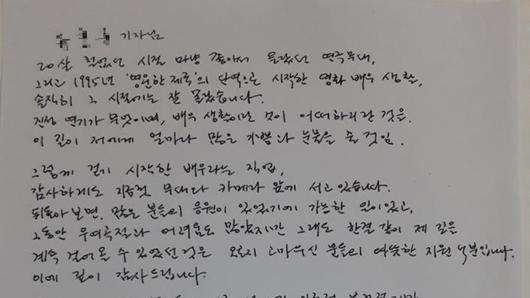 기자님
20살 철없던 시절 마냥 좋아서 올랐던 연극무대,
그리고 1995년 '영원한 제국'의 단역으로 시작한 영화 배우 생활,
솔직히 그 시절에는 잘 몰랐습니다.
진정 연기가 무엇이며, 배우 생활이란 것이 어떠하리란 것을.
이 길이 저에게 얼마나 많은 기쁨과 눈물을 줄 것임.
그렇게 걷기 시작한 배우라는 직업,
감사하게도 지금껏 무대와 카메라 앞에 서고 있습니다.
뒤돌아보면, 많은 분들의 응원이 있었기에 가능한 일이었고,
그동안 우여곡절과 어려움도 많았지만 그래도 한결 같이 제 길은
계속 걸어올 수 있었던 것은 오로지 고마우신 분들의 따뜻한 지원 덕분입니다.
이에 깊이 감사드립니다.